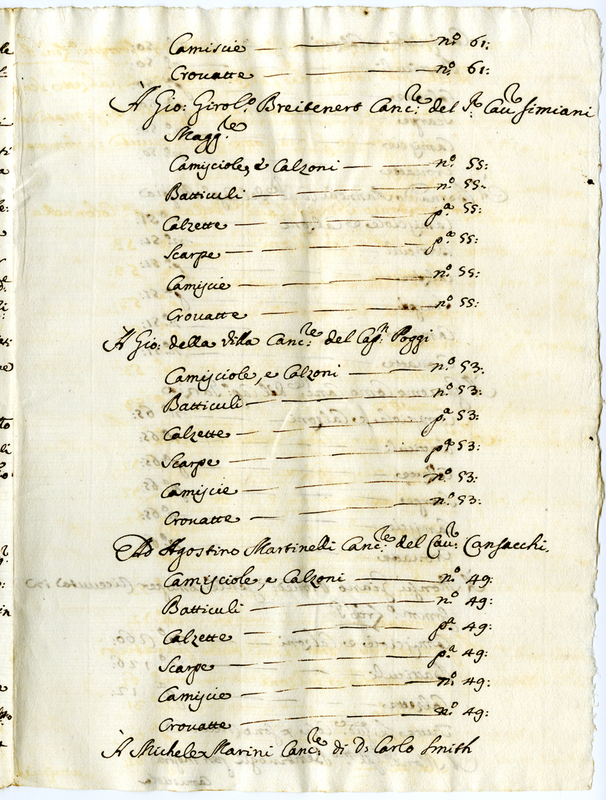 Camiscie — nº 61:
Crovatte — nº 61:
A Gio: Girolº Breitenert Canc:re del Sr. Cavr. Simiani
Magg:re
Camisciole, e Calzoni — nº 55:
Batticuli — nº 55:
Calzette — pa 55:
Scarpe — pa 55:
Camiscie — nº 55:
Crovatte — nº 55:
A Gio: della Villa Canc:re del Capn Poggi
Camisciole, e Calzoni — nº 53.
Batticuli — nº 53:
Calzette — pa 53:
Scarpe — pa 53:
Camiscie — nº 53:
Crovatte — nº 53:
Ad Agostino Martinelli Canc:re del Cavr: Cansacchi.
Camisciole, e Calzoni — nº 49:
Batticuli — nº 49:
Calzette — pa 49:
Scarpe — pa 49:
Camiscie — nº 49:
Crovatte — nº 49:
A Michele Marini Canc:re di D: Carlo Smith